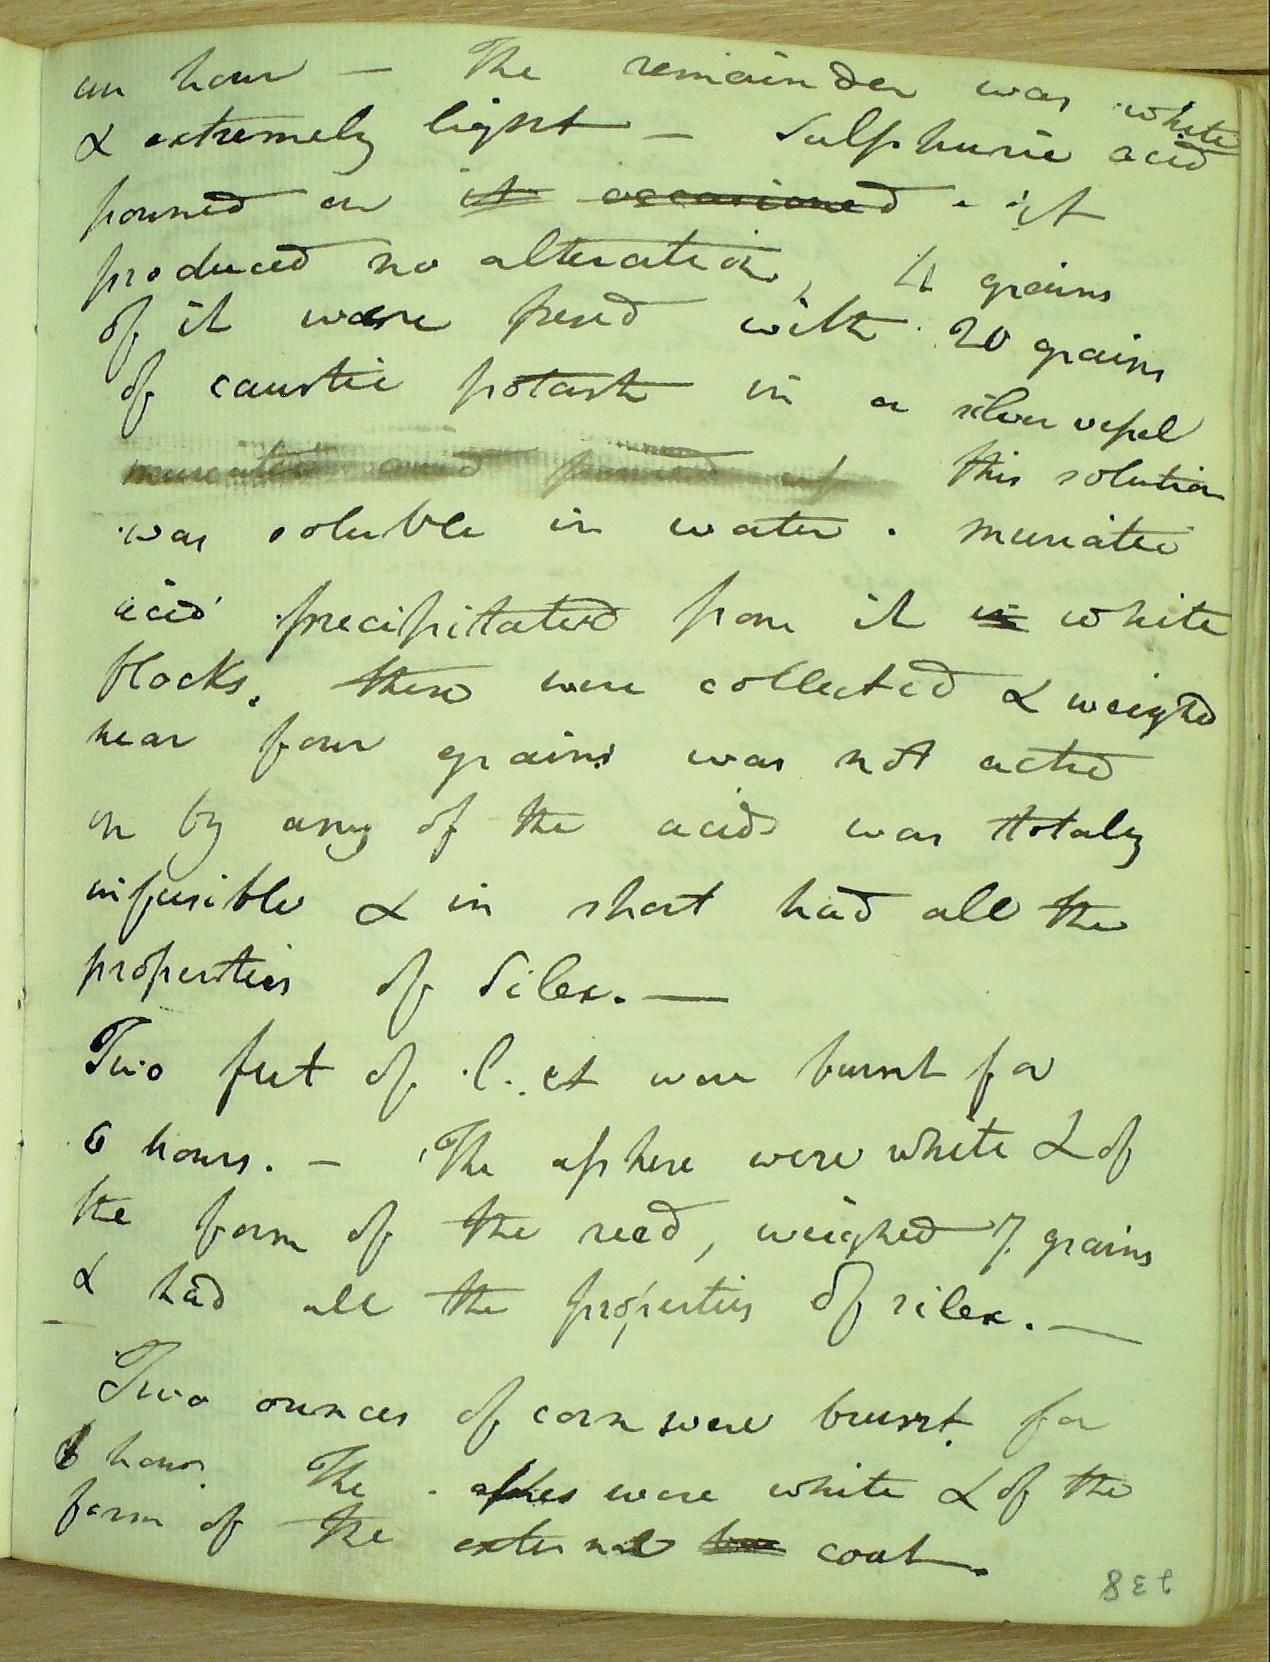 an hour — The remainder was white
& extremely light — Sulphuric acid
poured on it occasioned - it
produced no alteration, 4 grains
of it were fused with 20 grains
of caustic potash in a silver vessel
muriatic acid poured this solution
was soluble in water. muriatic
acid precipitated from it in white
flocks. these were collected & weighd
near four grains was not acted
on by any of the acids was totaly
infusible & in short had all the
properties of Silex. —
Two feet of were burnt for
6 hours. — The ashere were white & of
the form of the reed, weighed 7 grains
& had all the properties of silex. —
Two ounces of corn were burnt for
hour. The ashes were white & of the
form of the external coat.
138